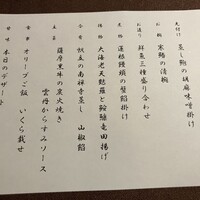 先付け 蒸し鮑の胡麻味噌掛け
お椀 寒鰤の清椀
お造り 鮮魚三種盛り合わせ
煮物 蓮根饅頭の蟹餡掛け
揚物 大海老天麩羅と鮟鱇竜田揚げ
合肴 帆立の南禅寺蒸し 山椒餡
主菜 薩摩黒牛の炭火焼き
雲丹からすみソース
食事 オリーブご飯 いくら載せ
甘味 本日のデザート